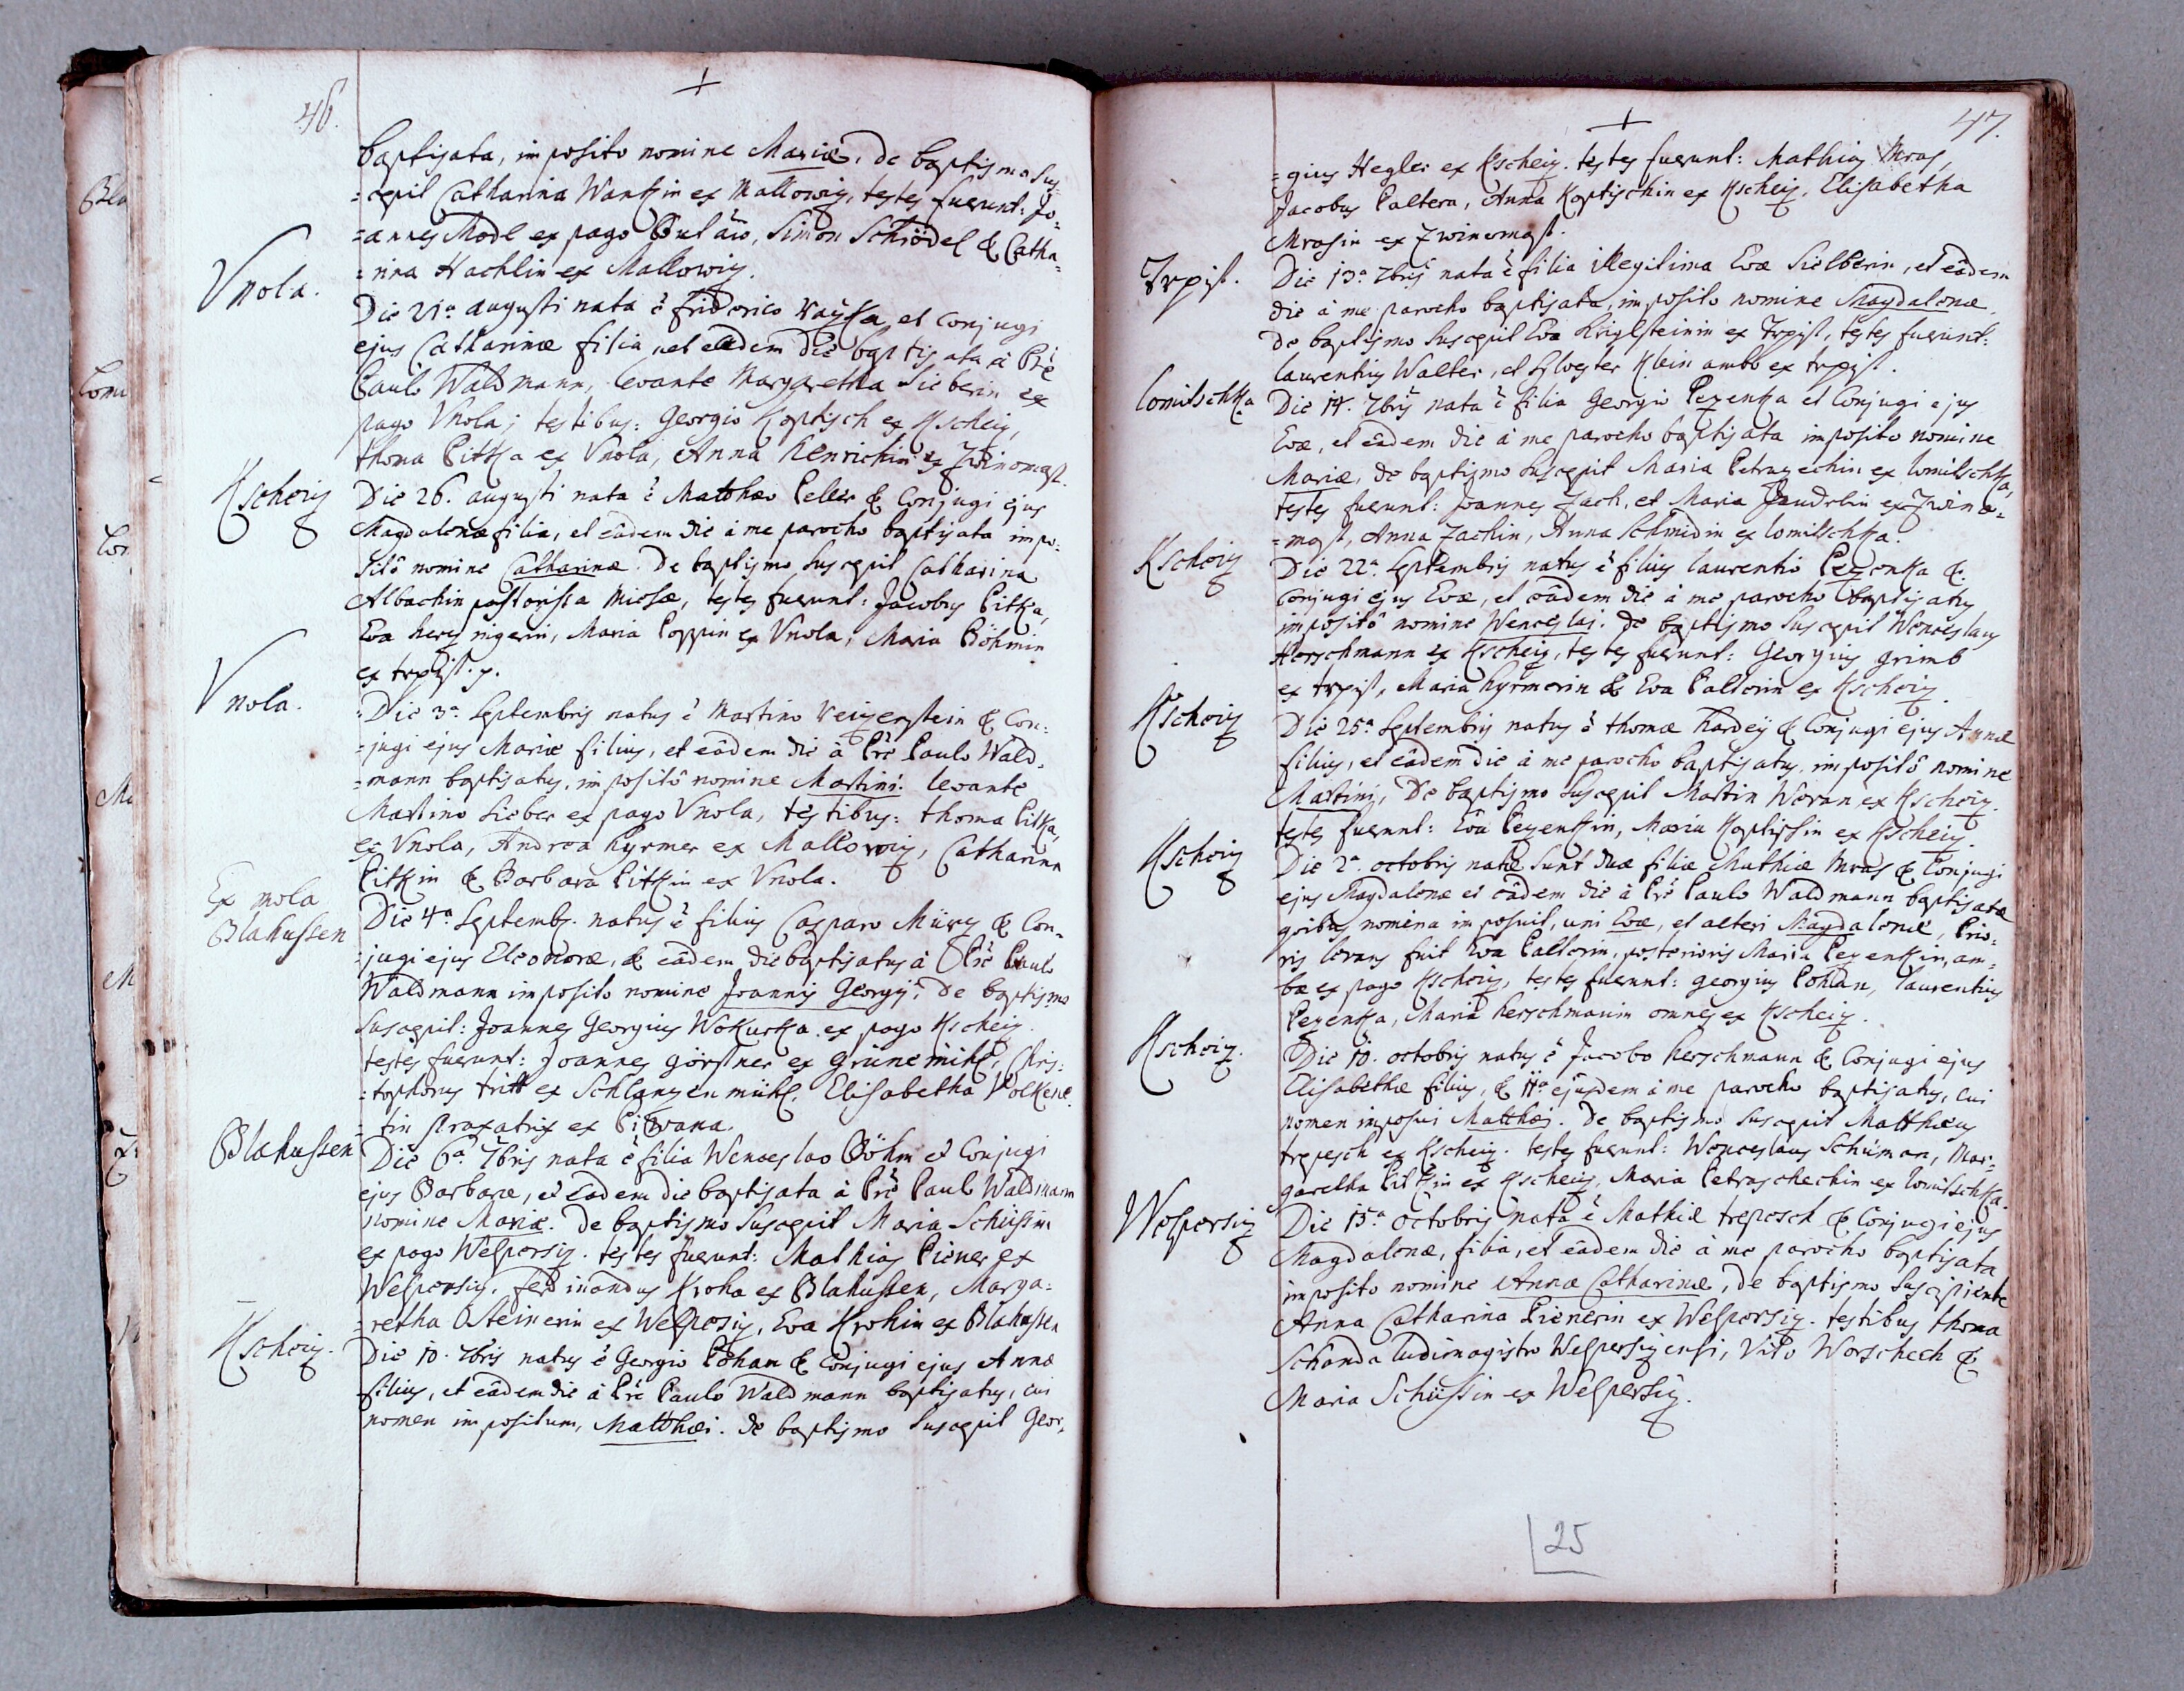 46.
+
baptisata, imposito nomine Mariæ, de baptismo sus-
=cepit Catharina Wankin ex Mallowiz, testes fuerunt: Jo-
=annes Model ex pago, Simon Schrödel & Catha-
=rina Hachlin ex Mallowiz.
Vnola.
Die 21a augusti nata ê Friderico et Conjugi
ejus Catharinæ filia, et eâdem die baptisata à Prê
Paulo Waldmann, levante Margaretha Sieberin ex
pago Vnola; testibus: Georgio Koptisch ex Kscheiz,
thoma Pitka ex Vnola, Anna Henrichin ex Zwinomast.
Kscheiz
Die 26. augusti nata ê Matthæo Peller & Conjugi ejus
Magdalenæ filia, et eâdem die à me parocho baptisata impo=
sitô nomine Catharinæ. De baptismo suscepit Catharina
Albachin miesæ, testes fuerunt: Jacobus Pitka,
Eva, Maria Poppin ex Vnola, Maria Böhmin
ex trpist. p.
Vnola.
=Die 3a Septembris natus ê Martino Veigenstein & Con=
=jugi ejus Mariæ filius, et eâdem die à Prê Paulo Wald.
=mann baptisatus, impositô nomine Martini. levante
Martino Sieber ex pago Vnola, testibus: thoma Pitka,
ex Vnola, Andrea Hyrmer ex Mallowiz, Catharina
Pitkin & Barbara Pitkin ex Vnola.
Ex mola
Blahussen
Die 4a Septemb. natus ê filius Casparo & Con-
=jugi ejus Eleonoræ, & eâdem die baptisatus à Prê Paulo
Waldmann imposito nomine Joannis Georgij. De baptismo
suscepit: Joannes Georgius Wokurka ex pago Kscheiz.
testes fuerunt: Joannes görstner ex Grünemihl, Chris=
=tophorus tritt ex Schlangenmühl, Elisabetha
=tin ex
Blahussen
Die 6a 7bris nata ê filia Wenceslao Böhm et Conjugi
ejus Barbaræ, et eâdem die baptisata à Prê Paulo Waldmann
nomine Mariæ. De baptismo suscepit Maria Schüssin
ex pago Welpersiz. testes fuerunt: Mathias Piener ex
Welpersiz, Ferdinandus Kroha ex Blahussen, Marga=
=retha Steinerin ex Welpersiz, Eva Krohin ex Blahussen
Kscheiz.
Die 10. 7bris natus ê Georgio Pohan & Conjugi ejus Annæ
filius, et eâdem die à Prê Paulo Waldmann baptisatus, cui
nomen impositum, Matthæi. de baptismo suscepit Geor.
47.
+
=gius Hegler ex Kscheiz. testes fuerunt: Mathias Mras,
Jacobus Paltera, Anna Koptischin ex Kscheiz, Elisabetha
Mrasin ex Zwinomast.
Trpist.
Die 13a 7bris nata ê filia illegitima Evæ Sielberin, et eâdem
die à me parocho baptisata, imposito nomine Magdalenæ,
De baptismo suscepit Eva Kriglsteinin ex Trpist, testes fuerunt:
laurentius Walter, et Sylvester Klein ambo ex trpist.
lomitschka
Die 14. 7bris nata ê filia Georgio Pezenka et Conjugi ejus
Evæ, et eâdem die à me parocho baptisata imposito nomine
Mariæ, De baptismo suscepit Maria Petrazechin ex lomitschka,
testes fuerunt: Joannes Zach, et Maria ex Zwino=
=mast, Anna Zachin, Anna Schmidin ex lomitschka.
Kscheiz
Die 22a Septembris natus ê filius laurentio Pezenka &
Conjugi ejus Evæ, et eâdem die à me parocho baptisatus
impositô nomine Wenceslai. De baptismo suscepit Wenceslaus
Herschmann ex Kscheiz, testes fuerunt: Georgius grimb
ex trpist, Maria Hyrmerin & Eva Palterin ex Kscheiz.
Kscheiz
Die 25a Septembris natus ê thomæ & Conjugi ejus Annæ
filius, et eâdem die à me parocho baptisatus, impositô nomine
Martini, De baptismo suscepit Martin Woran ex Kscheiz.
testes fuerunt: Eva Pezenkin, Maria Koptissin ex Kscheiz.
Kscheiz
Die 2a octobris natæ sunt duæ filiæ Mathiæ Mras & Conjugi
ejus Magdalenæ et eâdem die à Prê Paulo Waldmann baptisatæ
quibus nomina imposuit, uni Evæ, et alteri Magdalenæ, Prio=
ris levans fuit Eva Palterin, posterioris Maria Pezenkin, am=
bæ ex pago Kscheiz, testes fuerunt: georgius Pohan, laurentius
Pezenka, Maria Herschmanin omnes ex Kscheiz.
Kscheiz.
Die 10. octobris natus ê Jacobo Herschmann & Conjugi ejus
Elisabethæ filius, & 11a ejusdem à me parocho baptisatus, cui
nomen imposui Matthæi. De baptismo suscepit Matthæus
trepesch ex Kscheiz. testes fuerunt: Wenceslaus Schuman, Mar=
garetha Pitkin ex Kscheiz, Maria Petraschechin ex lomitschka.
Welpersiz
Die 15a octobris nata ê Mathiæ trepesch & Conjugi ejus
Magdalenæ, filia, et eâdem die à me parocho baptisata
imposito nomine Annæ Catharinæ, de baptismo suscipiente
Anna Catharina Pienerin ex Welpersiz. testibus thoma
Schanda ludimagistro Welpersizensi, Vito Worschech &
Maria Schüssin ex Welpersiz.
25